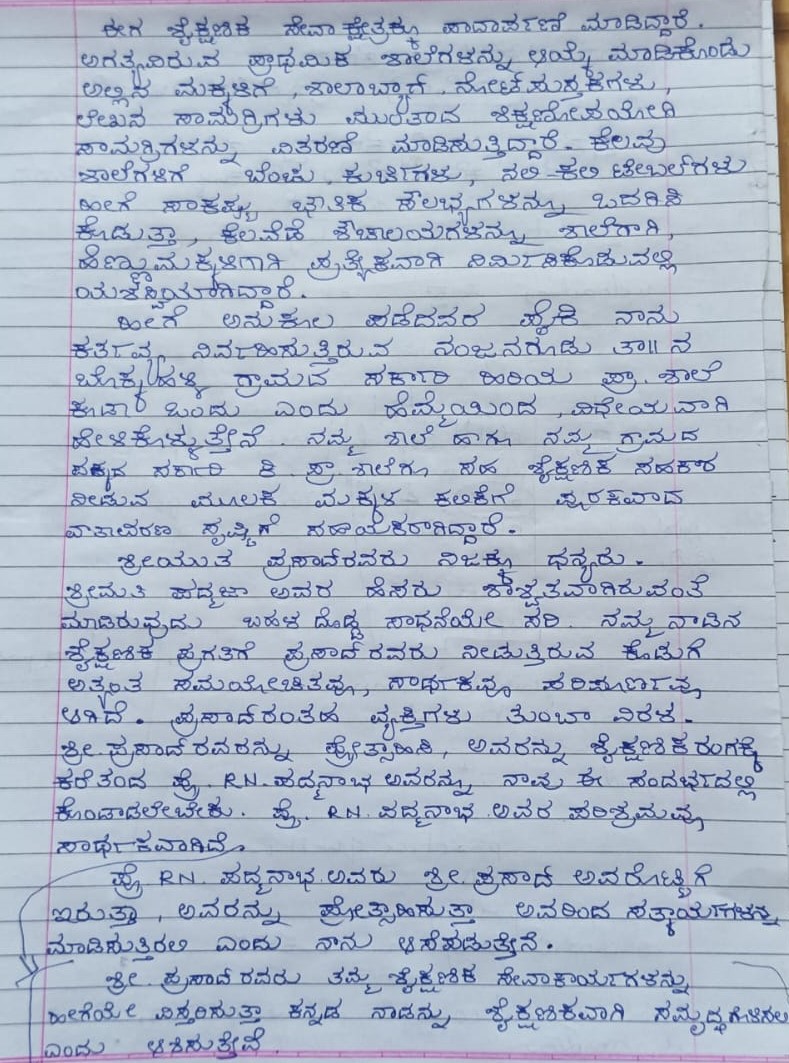 ಈಗ ಶೈಕ್ಷಣಿಕ ಸೇವಾ ಕ್ಷೇತ್ರಕ್ಕೂ ಪಾದಾರ್ಪಣೆ ಮಾಡಿದ್ದಾರೆ.
ಅಗತ್ಯವಿರುವ ಪ್ರಾಥಮಿಕ ಶಾಲೆಗಳನ್ನು ಆಯ್ಕೆ ಮಾಡಿಕೊಂಡು
ಅಲ್ಲಿನ ಮಕ್ಕಳಿಗೆ, ಶಾಲಾಬ್ಯಾಗ್, ನೋಟ್ ಪುಸ್ತಕಗಳು,
ಲೇಖನ ಸಾಮಗ್ರಿಗಳು ಮುಂತಾದ ಶಿಕ್ಷಣೋಪಯೋಗಿ
ಸಾಮಗ್ರಿಗಳನ್ನು ವಿತರಣೆ ಮಾಡಿಸುತ್ತಿದ್ದಾರೆ. ಕೆಲವು
ಶಾಲೆಗಳಿಗೆ ಬೆಂಚು, ಕುರ್ಚಿಗಳು, ನಲಿ-ಕಲಿ ಟೇಬಲ್‌ಗಳು
ಹೀಗೆ ಸಾಕಷ್ಟು ಭೌತಿಕ ಸೌಲಭ್ಯಗಳನ್ನು ಒದಗಿಸಿ
ಕೊಡುತ್ತಾ, ಕೆಲವೆಡೆ ಶೌಚಾಲಯಗಳನ್ನು ಶಾಲೆಗಾಗಿ,
ಹೆಣ್ಣುಮಕ್ಕಳಿಗಾಗಿ ಪ್ರತ್ಯೇಕವಾಗಿ ನಿರ್ಮಿಸಿಕೊಡುವಲ್ಲಿ
ಯಶಸ್ವಿಯಾಗಿದ್ದಾರೆ.
ಹೀಗೆ ಅನುಕೂಲ ಪಡೆದವರ ಪೈಕಿ ನಾನು
ಕರ್ತವ್ಯ ನಿರ್ವಹಿಸುತ್ತಿರುವ ನಂಜನಗೂಡು ತಾ॥ ನ
ಬೊಕ್ಕಹಳ್ಳಿ ಗ್ರಾಮದ ಸರ್ಕಾರಿ ಹಿರಿಯ ಪ್ರಾ. ಶಾಲೆ
ಕೂಡಾ ಒಂದು ಎಂದು ಹೆಮ್ಮೆಯಿಂದ, ವಿಧೇಯವಾಗಿ
ಹೇಳಿಕೊಳ್ಳುತ್ತೇನೆ. ನಮ್ಮ ಶಾಲೆ ಹಾಗೂ ನಮ್ಮ ಗ್ರಾಮದ
ಪಕ್ಕದ ಸರ್ಕಾರಿ ಕಿ. ಪ್ರಾ. ಶಾಲೆಗೂ ಸಹ ಶೈಕ್ಷಣಿಕ ಸಹಕಾರ
ನೀಡುವ ಮೂಲಕ ಮಕ್ಕಳ ಕಲಿಕೆಗೆ ಪೂರಕವಾದ
ವಾತಾವರಣ ಸೃಷ್ಟಿಗೆ ಸಹಾಯಕರಾಗಿದ್ದಾರೆ.
ಶ್ರೀಯುತ ಪ್ರಸಾದ್‌ರವರು ನಿಜಕ್ಕೂ ಧನ್ಯರು.
ಶ್ರೀಮತಿ ಪದ್ಮಜಾ ಅವರ ಹೆಸರು ಶಾಶ್ವತವಾಗಿರುವಂತೆ
ಮಾಡಿರುವುದು ಬಹಳ ದೊಡ್ಡ ಸಾಧನೆಯೇ ಸರಿ. ನಮ್ಮ ನಾಡಿನ
ಶೈಕ್ಷಣಿಕ ಪ್ರಗತಿಗೆ ಪ್ರಸಾದ್ ರವರು ನೀಡುತ್ತಿರುವ ಕೊಡುಗೆ
ಅತ್ಯಂತ ಸಮಯೋಚಿತವೂ, ಸಾರ್ಥಕವೂ ಪರಿಪೂರ್ಣವೂ
ಆಗಿದೆ. ಪ್ರಸಾದ್‌ರಂತಹ ವ್ಯಕ್ತಿಗಳು ತುಂಬಾ ವಿರಳ.
ಶ್ರೀ. ಪ್ರಸಾದ್ ರವರನ್ನು ಪ್ರೋತ್ಸಾಹಿಸಿ, ಅವರನ್ನು ಶೈಕ್ಷಣಿಕ ರಂಗಕ್ಕೆ
ಕರೆತಂದ ಪ್ರೊ. RN. ಪದ್ಮನಾಭ ಅವರನ್ನು ನಾವು ಈ ಸಂದರ್ಭದಲ್ಲಿ
ಕೊಂಡಾಡಲೇಬೇಕು. ಪ್ರೊ. RN. ಪದ್ಮನಾಭ ಅವರ ಪರಿಶ್ರಮವೂ
ಸಾರ್ಥಕವಾಗಿದೆ.
ಪ್ರೊ RN. ಪದ್ಮನಾಭ ಅವರು ಶ್ರೀ. ಪ್ರಸಾದ್ ಅವರೊಟ್ಟಿಗೆ
ಇರುತ್ತಾ, ಅವರನ್ನು ಪ್ರೋತ್ಸಾಹಿಸುತ್ತಾ ಅವರಿಂದ ಸತ್ಕಾರ್ಯಗಳನ್ನು
ಮಾಡಿಸುತ್ತಿರಲಿ ಎಂದು ನಾನು ಆಸೆಪಡುತ್ತೇನೆ.
ಶ್ರೀ. ಪ್ರಸಾದ್ ರವರು ತಮ್ಮ ಶೈಕ್ಷಣಿಕ ಸೇವಾಕಾರ್ಯಗಳನ್ನು
ಹೀಗೆಯೇ ವಿಸ್ತರಿಸುತ್ತಾ ಕನ್ನಡ ನಾಡನ್ನು ಶೈಕ್ಷಣಿಕವಾಗಿ ಸಮೃದ್ಧಗೊಳಿಸಲಿ
ಎಂದು ಆಶಿಸುತ್ತೇನೆ